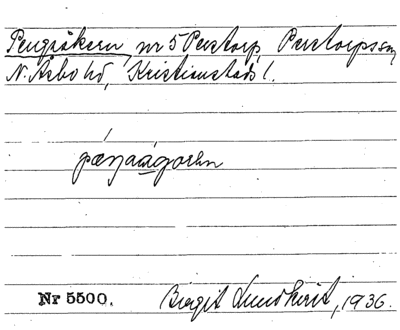 Pengaåkern, nr 5 Perstorp, Perstorps sn,
N. Åsbo hd, Kristianstads l.
Nr 5500. Birgit Lundkvist, 1936.